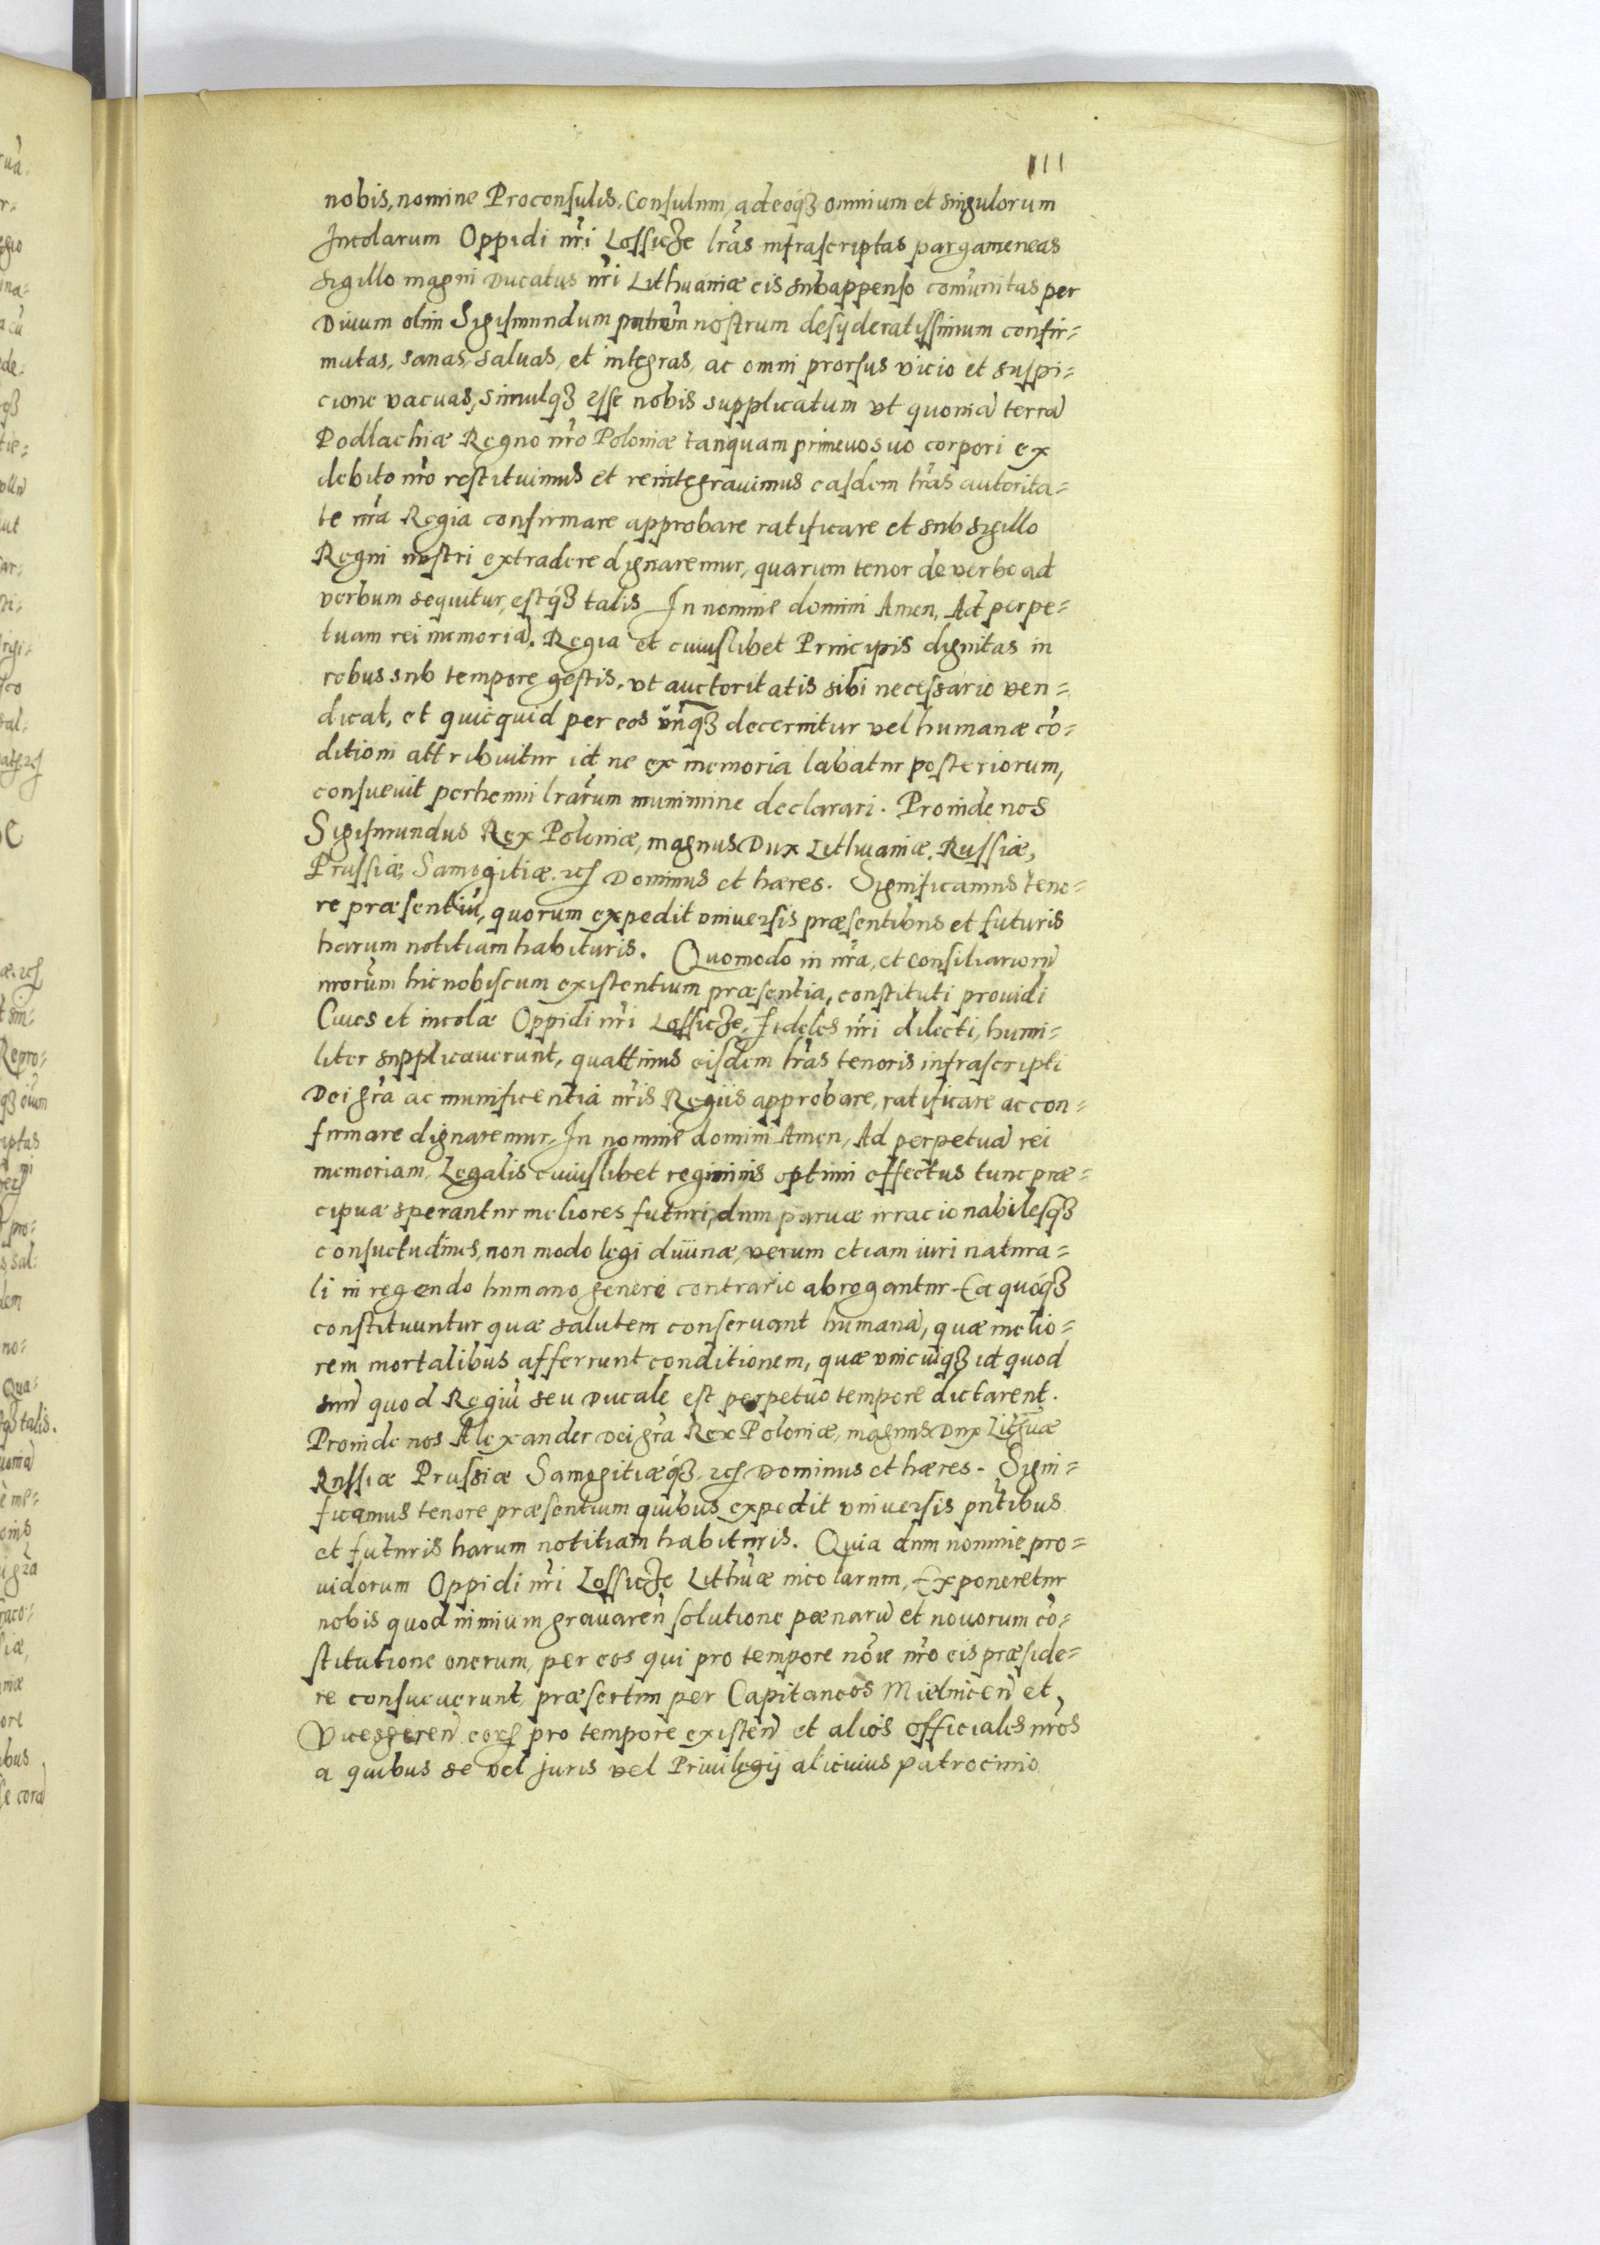 111
nobis, nomine Proconsulis, Consulum, adeoq3 omnium et singulorum
Incolarum Oppidi nr̃i Lossicze lr̃as infrascriptas pargameneas
sigillo magni Ducatus nr̃i Lithuaniæ eis subappenso comunitas per
Diuum olim Sigismundum patrem nostrum desyderatissimum confir=
matas, sanas, saluas, et integras, ac omni prorsus vicio et suspi=
cione vacuas, simulq3 esse nobis supplicatum vt quoniã terrã
Podlachiæ Regno nr̃o Poloniæ tanquam primeuo suo corpori ex
debito nr̃o restituimus et reintegrauimus easdem lr̃as autorita=
te nr̃a Regia confirmare approbare ratificare et sub sigillo
Regni nostri extradere dignaremur, quarum tenor de verbo ad
verbum sequitur, estq3 talis In nomine domini Amen, Ad perpe=
tuam rei memoriã. Regia et cuiuslibet Principis dignitas in
rebus sub tempore gestis, vt auctoritatis sibi necessario ven=
dicat, et quicquid per eos vñq3 decernitur vel humanæ cõ=
ditioni attribuitur id ne ex memoria labatur posteriorum,
consueuit perhenni lr̃arum munimine declarari. Proinde nos
Sigismundus Rex Poloniæ, magnus Dux Lithuaniæ, Russiæ,
Prussiæ, Samogitiæ, zc̃ Dominus et hæres. Significamus teno=
re præsentiũ, quorum expedit vniuersis præsentibus et futuris
harum notitiam habituris. Quomodo in nr̃a, et consiliariorũ
nrorũm hic nobiscum existentium præsentia, constituti prouidi
Ciues et incolæ Oppidi nr̃i Lossicze, fideles nr̃i dilecti, humi=
liter supplicauerunt, quattinus eisdem lr̃as tenoris infrascripti
Dei gr̃a ac munificentia nr̃is Regiis approbare, ratificare ac con=
firmare dignaremur, In nomine domini Amen, Ad perpetuã rei
memoriam, Legalis cuiuslibet regiminis optimi effectus tunc præ=
cipuæ sperantur meliores futuri, dum paruæ irracionabilesq3
consuetudines, non modo legi diuinæ, verum etiam iuri natura=
li in regendo humano genere contrario abrogantur Ea quoq3
constituuntur quæ salutem conseruant humanã, quæ melio=
rem mortalibus afferrunt conditionem, quæ vnicuiq3 id quod
suũ quod Regiũ seu Ducale est perpetuo tempore dictarent.
Proinde nos Alexander Dei gr̃a Rex Poloniæ, magnus Dux Lithũæ
Russiæ Prussiæ Samogitiæq3, zc̃ Dominus et hæres. Signi=
ficamus tenore præsentium quibus expedit vniuersis pñtibus
et futuris harum notitiam habituris. Quia dum nomine pro=
uidorum Oppidi nr̃i Lossicze Lithũæ incolarum, Exponeretur
nobis quod nimium grauareñ solutione pænarũ et nouorum cõ=
stitutione onerum, per eos qui pro tempore nõie nr̃o eis præside=
re consueuerunt, præsertim per Capitaneos Mielniceñ et
Vicesgereñ eorȝ pro tempore existeñ et alios officiales nr̃os
a quibus se vel juris vel Priuilegij alicuius patrocinio